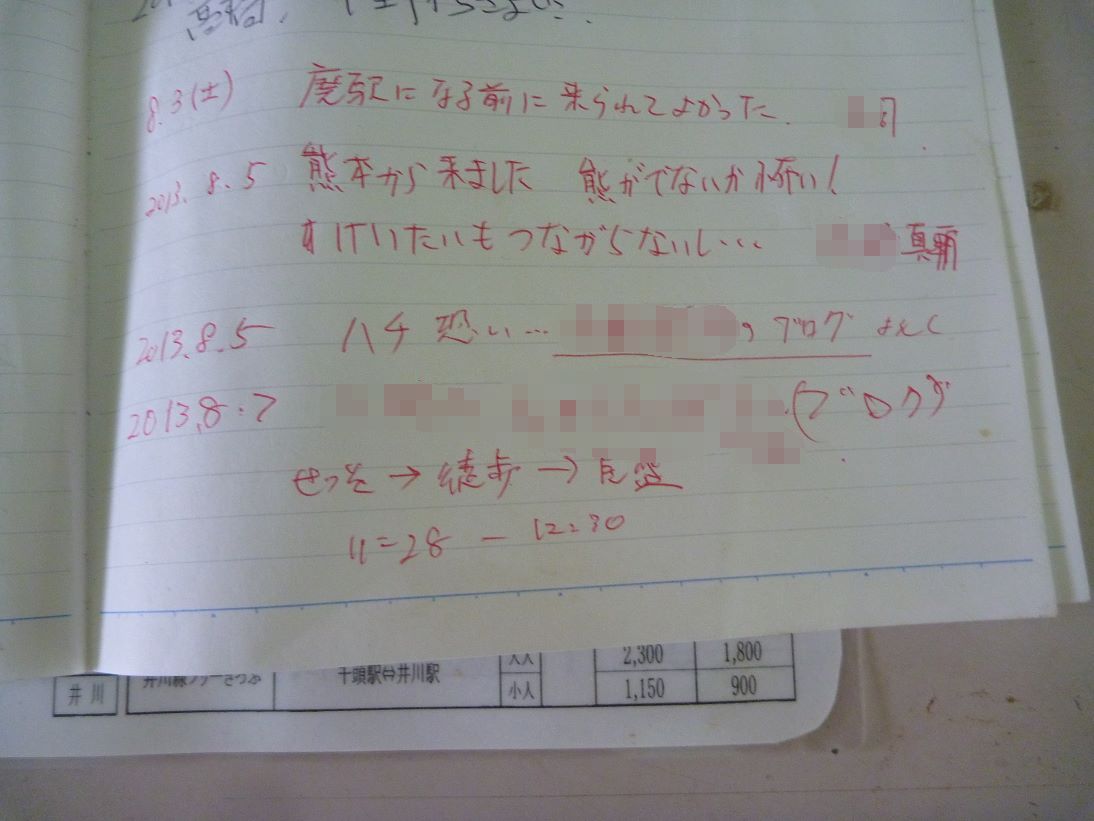 8.3(土) 廃駅になる前に来られてよかった.
2013.8.5 熊本から来ました 熊がでないか怖い!
けいたいもつながらないし… 真
2013.8.5 ハチ恐い… のブログ よんで
2013.8.7 (ブログ
せっそ→徒歩→尾盛
11=28 - 12:30
大人 2,300 1,800
井川 井川線フリーきっぷ 千頭駅⇔井川駅
小人 1,150 900